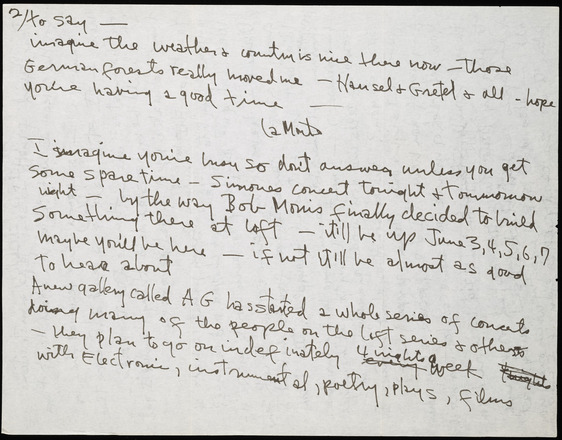 2/to say —
imagine the weather & country is nice there now — those
German forests really moved me — Hansel & Gretel & all - hope
you're having a good time —
(LaMonte
I imagine you're busy so don't answer unless you get
some spare time — Simones concert tonight & tommorrow
night — by the way Bob Morris finally decided to build
something there at loft — it'll be up June 3,4,5,6,7
maybe you'll be here — if not it'll be almost as good
to hear about
A new gallery called A G has started a whole series of concerts
doing many of the people on the loft series & others
— they plan to go on indefinately 4 nights a week
with Electronic, instrumental, poetry, plays, films